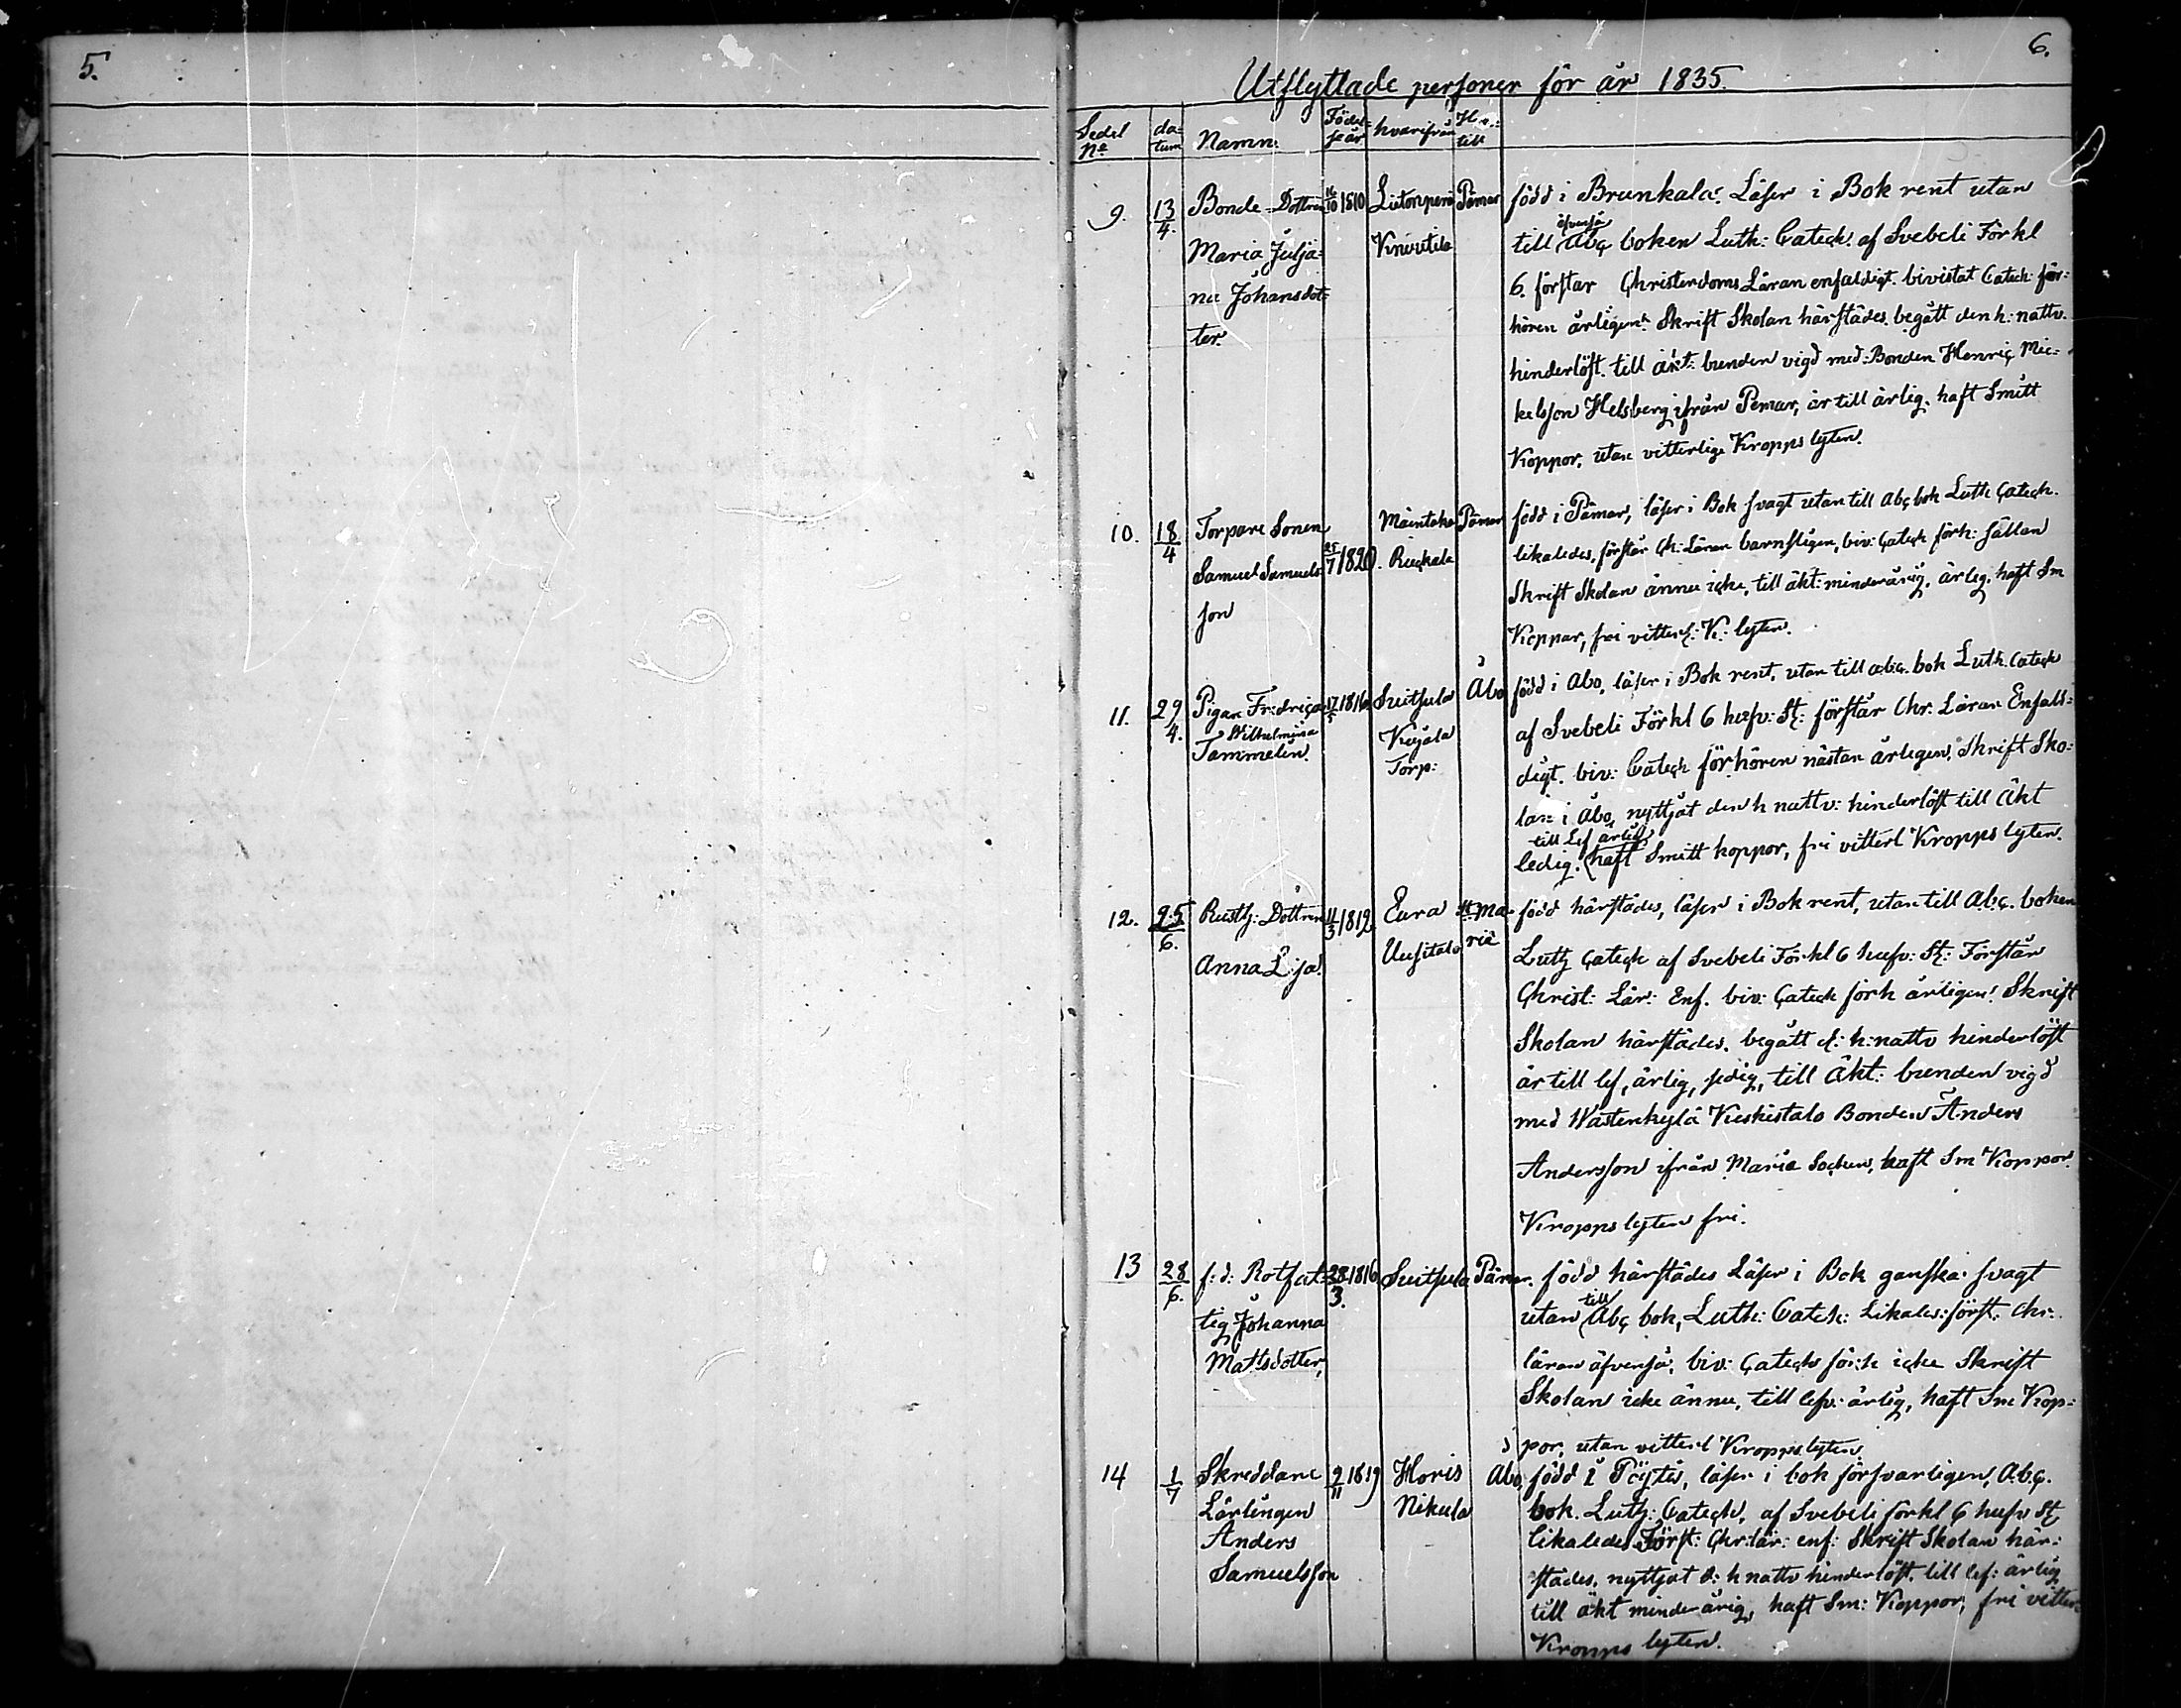 5.
6.
Utflyttade personer för år 1835.
Sedel No datum Namn Födelse år hvarifrån Hvar till
9. 13/4. Bonde-Dottren 16/10 1810 Lietonperä Pämar född i Brunkala. Läser i Bok rent utan
Maria Julja= Knuutila till äfvenså Abç boken Luth: Catech. af Svebeli Förkl
na Johansdot= 6. förstår Christendoms Läran enfaldigt. bivistat Catech: för=
ter. hören årligen. Skrift Skolan härstädes. begått den h: nattv.
hinderlöst. till äkt: bunden vigd med: Bonden Henriç Mic=
kelsson Helsberg ifrån Pemar, är till ärlig. haft Smitt
Koppor, utan vitterlige Kropps lyten.
10. 18/4 Torpare Sonen Mäintaka Pämar född i Pämar, läser i Bok svagt utan till Abç bok Luth Çatech.
Samuel Samuels 25/7 1820. Ruçkala likaledes, förstår Ch: Läran barnsligen, biv: Çatech förh: sällan
son Skrift Skolan ännu icke, till äkt: minderårig, ärlig, haft Sm
Koppor, fri vitterl: K: lyten.
11. 29/4. Pigan Fredriça 17/5 1816 Suitsula Åbo född i Åbo, läser i Bok rent, utan till abç. bok Luth. Catech
Wilhelmina Kujala af Svebeli Förkl 6 hufv: St: förstår Chr: Läran Enfal=
Tammelin. Torp: digt. biv: Catech förhören nästan årligen, Skrift Sko=
lan i Åbo, nyttjat den h nattv: hinderlöst till Äkt
till Lef ärlig
ledig. haft Smitt koppor, fri vitterl Kropps lyten.
12. 25/6. Rusth: Dottren 11/3 1812 Eura St Ma= född härstädes, läser i Bok rent, utan till Abç. boken
Anna Lisa. Uusitalo ria Luth Çatech af Svebeli Förkl 6 hufv: St: Förstår
Christ: Lär: Enf. biv: Çatech förh årligen. Skrift
Skolan härstädes. begått d: h: nattv hinderlöst
är till lef, ärlig, sedig, till Äkt: bunden vigd
med Wästenkylä Keskistalo Bonden Anders
Andersson ifrån Maria Socken, haft Sm Koppor.
Kropps lyten fri.
13 28/6. f: d: Rotfat= 28/3. 1816 Suitsula Pämar. född härstädes Läser i Bok ganska svagt
tig Johanna utan till Abç bok, Luth: Catech: Likales: först: Chr:
Mattsdotter, läran äfvenså, biv: Çatech förh icke Skrift
Skolan icke ännu, till lefv: ärlig, haft Sm Kop=
por, utan vitterl Kropps lyten
14 1/7 Skreddare 9/11 1819 Horis Åbo, född i Pöytis, läser i bok försvarligen, Abç.
Lärlingen Nikula bok. Luth: Catech, af Svebeli förkl 6 hufv St
Anders likaledes Först: Chr: lär: enf: Skrift Skolan här=
Samuelsson städes, nyttjat d: h nattv hinderlöst. till lef: ärlig
till äkt minderårig, haft Sm: Koppor, fri vitter
Kropps lyten.